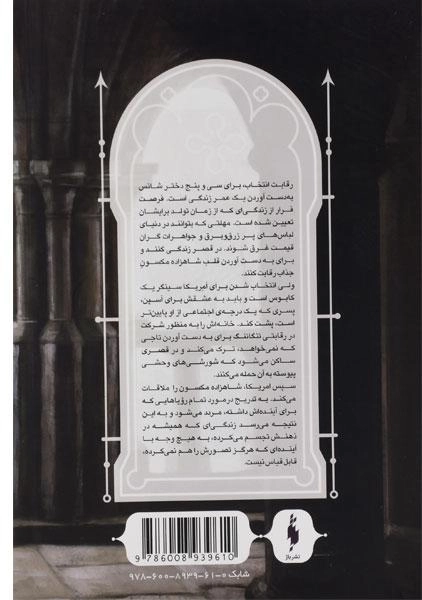 رقابت انتخاب، برای سی و پنج دختر شانس
به‌دست آوردن یک عمر زندگی است. فرصت
فرار از زندگی‌ای که از زمان تولد برایشان
تعیین شده است. مهلتی که بتوانند در دنیای
لباس‌های پر زرق‌وبرق و جواهرات گران
قیمت غرق شوند. در قصر زندگی کنند و
برای به دست آوردن قلب شاهزاده مکسونِ
جذاب رقابت کنند.
ولی انتخاب شدن برای آمریکا سینگر یک
کابوس است و باید به عشقش برای آسپن،
پسری که یک درجه‌ی اجتماعی از او پایین‌تر
است، پشت کند. خانه‌اش را به منظور شرکت
در رقابتی تنگاتنگ برای به دست آوردن تاجی
که نمی‌خواهد، ترک می‌کند و در قصری
ساکن می‌شود که شورشی‌های وحشی
پیوسته به آن حمله می‌کنند.
سپس امریکا، شاهزاده مکسون را ملاقات
می‌کند. به تدریج درمورد تمام رؤیاهایی که
برای آینده‌اش داشته، مردد می‌شود و به این
نتیجه می‌رسد زندگی‌ای که همیشه در
ذهنش تجسم می‌کرده، به هیچ وجه با
آینده‌ای که هرگز تصورش را هم نمی‌کرده،
قابل قیاس نیست.
نشر باژ
9 786008 939610
شابک ۰-۶۱-۸۹۳۹-۶۰۰-۹۷۸